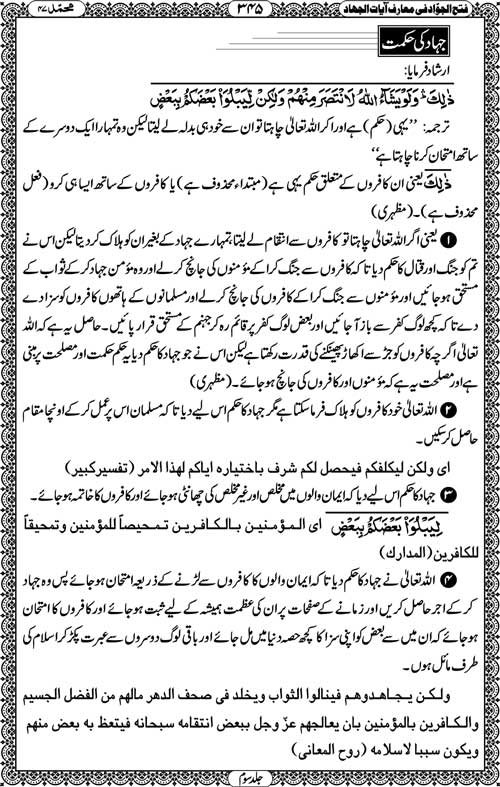 فتح الجوّاد فی معارف آیات الجهاد ۳۴۵ محمّد ۴۷
جہاد کی حکمت
ارشاد فرمایا:
ذٰلِكَ وَلَوْ يَشَآءُ اللّٰهُ لَانْتَصَرَ مِنْهُمْ وَلٰكِنْ لِّيَبْلُوَا۟ بَعْضَكُمْ بِبَعْضٍ
ترجمہ: ”یہی (حکم) ہے اور اگر اللہ تعالیٰ چاہتا تو ان سے خود ہی بدلہ لے لیتا لیکن وہ تمہارا ایک دوسرے کے
ساتھ امتحان کرنا چاہتا ہے“
ذٰلِكَ یعنی ان کافروں کے متعلق حکم یہی ہے (مبتداء محذوف ہے) یا کافروں کے ساتھ ایسا ہی کرو (فعل
محذوف ہے)۔ (مظہری)
۱ یعنی اگر اللہ تعالیٰ چاہتا تو کافروں سے انتقام لے لیتا، تمہارے جہاد کے بغیر ان کو ہلاک کر دیتا لیکن اس نے
تم کو جنگ اور قتال کا حکم دیا تا کہ کافروں سے جنگ کرا کے مؤمنوں کی جانچ کر لے اور وہ مؤمن جہاد کر کے ثواب کے
مستحق ہو جائیں اور مؤمنوں سے جنگ کرا کے کافروں کی جانچ کر لے اور مسلمانوں کے ہاتھوں کافروں کو سزا دے
دے تا کہ کچھ لوگ کفر سے باز آ جائیں اور بعض لوگ کفر پر قائم رہ کر جہنم کے مستحق قرار پائیں۔ حاصل یہ ہے کہ اللہ
تعالیٰ اگرچہ کافروں کو جڑ سے اکھاڑ پھینکنے کی قدرت رکھتا ہے لیکن اس نے جو جہاد کا حکم دیا یہ حکم حکمت اور مصلحت پر مبنی
ہے اور مصلحت یہ ہے کہ مؤمنوں اور کافروں کی جانچ ہو جائے۔ (مظہری)
۲ اللہ تعالیٰ خود کافروں کو ہلاک فرما سکتا ہے مگر جہاد کا حکم اس لیے دیا تا کہ مسلمان اس پر عمل کر کے اونچا مقام
حاصل کر سکیں۔
ای ولکن لیکلفکم فیحصل لکم شرف باختیاره ایاکم لهذا الامر (تفسیر کبیر)
۳ جہاد کا حکم اس لیے دیا کہ ایمان والوں میں مخلص اور غیر مخلص کی چھانٹی ہو جائے اور کافروں کا خاتمہ ہو جائے۔
لِيَبْلُوَا۟ بَعْضَكُمْ بِبَعْضٍ ای المؤمنین بالکافرین تمحیصاً للمؤمنین وتمحیقاً
للکافرین (المدارک)
۴ اللہ تعالیٰ نے جہاد کا حکم دیا تا کہ ایمان والوں کا کافروں سے لڑنے کے ذریعہ امتحان ہو جائے پس وہ جہاد
کر کے اجر حاصل کریں اور زمانے کے صفحات پر ان کی عظمت ہمیشہ کے لیے ثبت ہو جائے اور کافروں کا امتحان
ہو جائے کہ ان میں سے بعض کو اپنی سزا کا کچھ حصہ دنیا میں مل جائے اور باقی لوگ دوسروں سے عبرت پکڑ کر اسلام کی
طرف مائل ہوں۔
ولکن یجاهدوهم فینالوا الثواب ویخلد فی صحف الدهر مالهم من الفضل الجسیم
والکافرین بالمؤمنین بان یعالجهم عزّ وجل ببعض انتقامه سبحانه فیتعظ به بعض منهم
ویکون سببا لاسلامه (روح المعانی)
جلد سوم